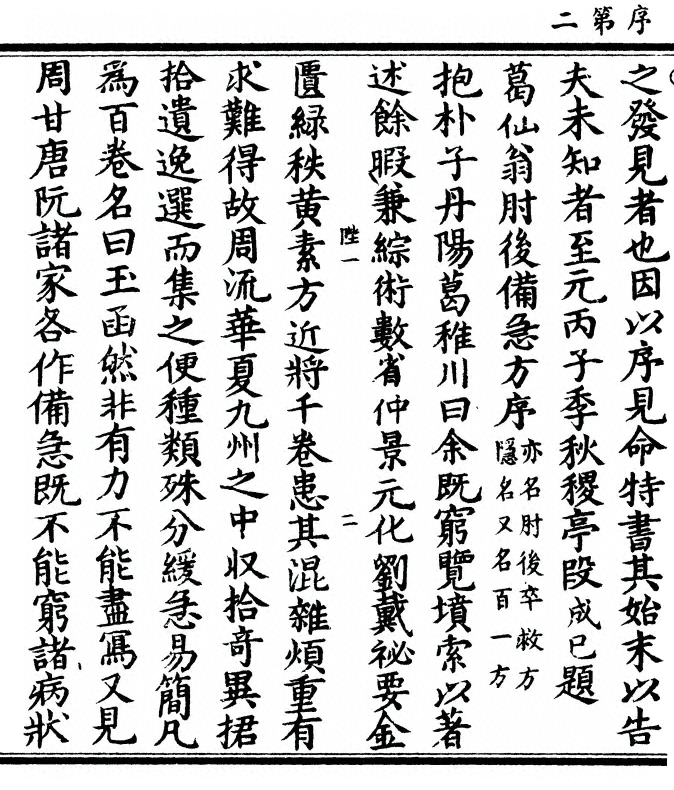 序第二
之發見者也因以序見命特書其始末以告
夫未知者至元丙子季秋稷亭段成巳題
葛仙翁肘後備急方序亦名肘後卒救方
隱名又名百一方
抱朴子丹陽葛稚川曰余既窮覽墳索以著
述餘暇兼綜術數省仲景元化劉戴祕要金
陞一 二
匱緑秩黄素方近將千卷患其混雜煩重有
求難得故周流華夏九州之中収拾奇異捃
拾遺逸選而集之便種類殊分緩急易簡凡
爲百卷名曰玉函然非有力不能盡寫又見
周甘唐阮諸家各作備急既不能窮諸病狀